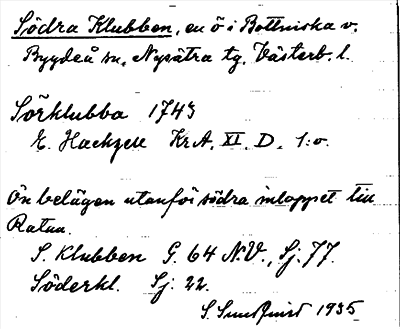 Södra Klubben, en ö i Bottniska v.
Bygdeå sn, Nysätra tg, Västerb. l.
Sörklubba 1743
E. Hackzell KrA. XI. D. 1:o.
Ön belägen utanför södra inloppet till
Ratan.
S. Klubben G. 64 N.V., Sj. 77.
Söderkl. Sj. 22.
S. Sundqvist 1935